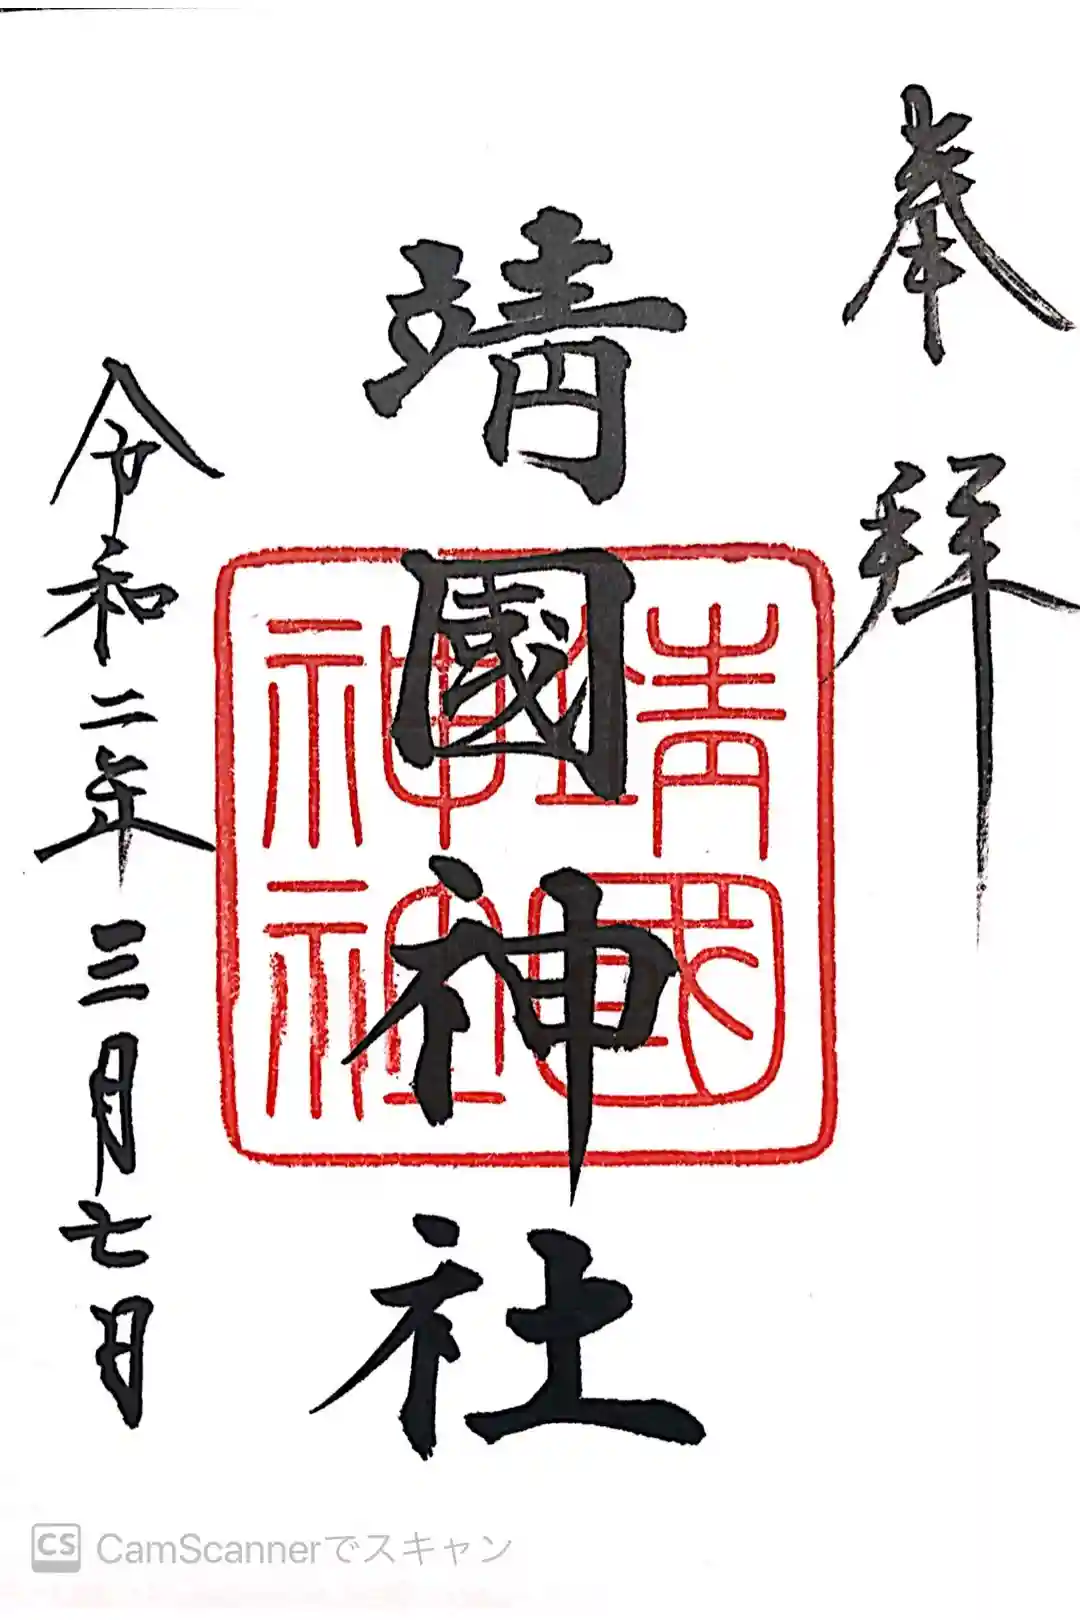 奉拝
靖國神社
靖國神社
令和二年三月七日
CS CamScannerでスキャン